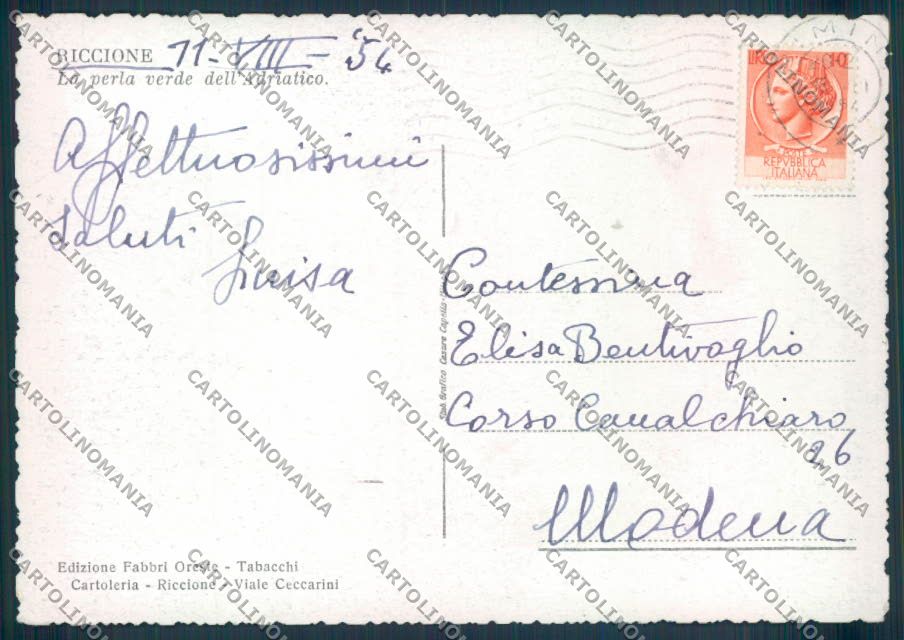 RICCIONE 11-VIII-'54
La perla verde dell'Adriatico.
Affettuosissimi
saluti
Luisa
LIRE 10
POSTE
REPVBBLICA
ITALIANA
Contessina
Elisa Bentivoglio
Corso Canalchiaro
26
Modena
Edizione Fabbri Oreste - Tabacchi
Cartoleria - Riccione - Viale Ceccarini
CARTOLINOMANIA